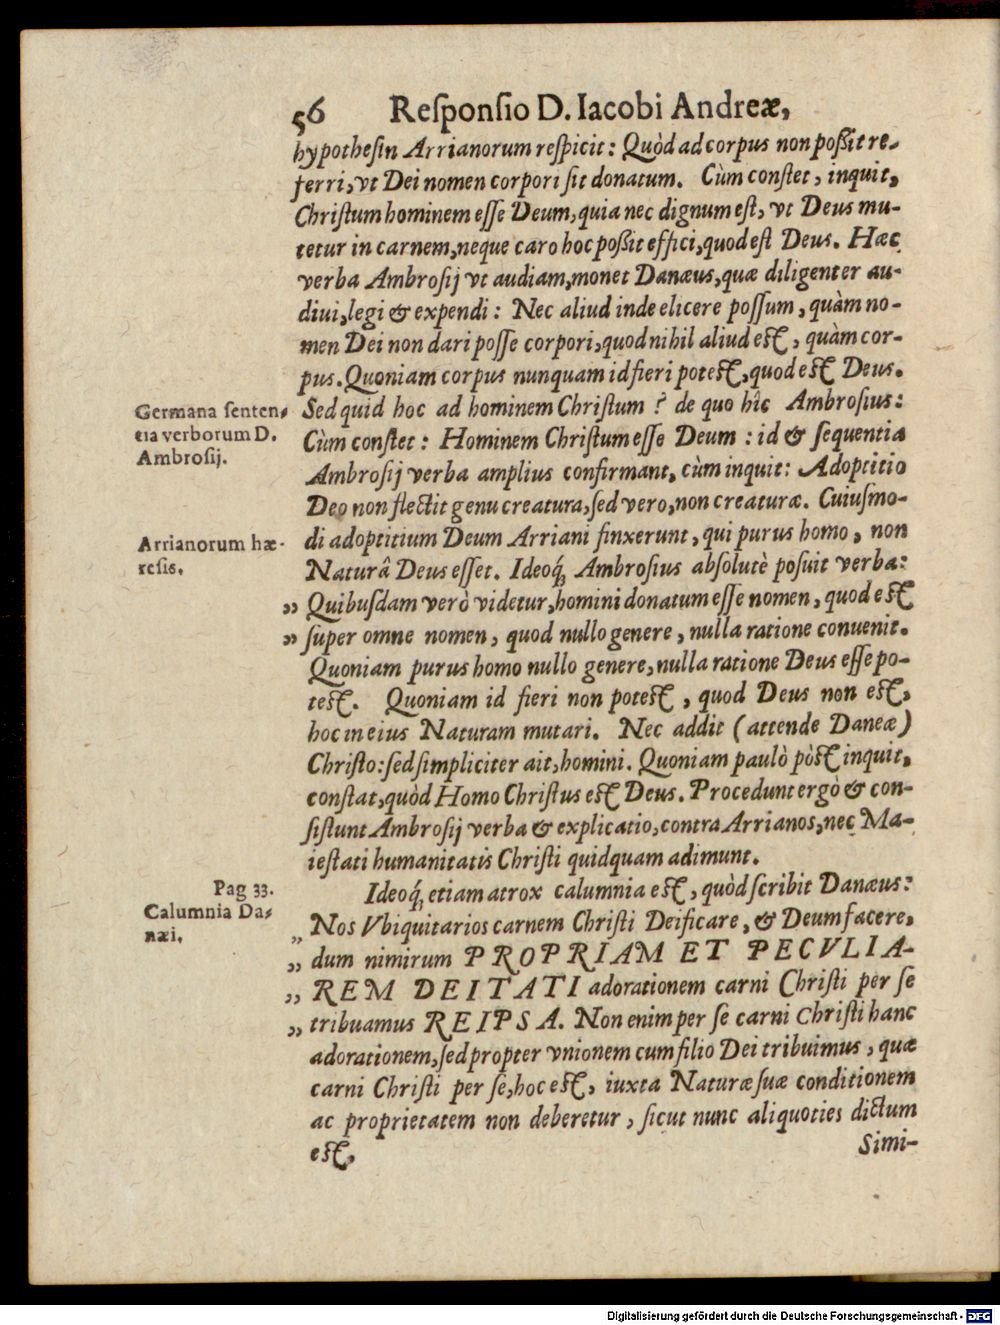 56 Reſponſio D. Iacobi Andreæ,
hypotheſin Arrianorum reſpicit: Quòd ad corpus non poßit re-
ferri, vt Dei nomen corpori ſit donatum. Cùm conſtet, inquit,
Chriſtum hominem eſſe Deum, quia nec dignum eſt, vt Deus mu-
tetur in carnem, neque caro hoc poßit effici, quod eſt Deus. Hæc
verba Ambroſij vt audiam, monet Danæus, quæ diligenter au-
diui, legi & expendi: Nec aliud inde elicere poſſum, quàm no-
men Dei non dari poſſe corpori, quod nihil aliud eſt, quàm cor-
pus. Quoniam corpus nunquam id fieri poteſt, quod eſt Deus.
Germana ſenten-
tia verborum D.
Ambroſij.
Sed quid hoc ad hominem Chriſtum? de quo hîc Ambroſius:
Cùm conſtet: Hominem Chriſtum eſſe Deum: id & ſequentia
Ambroſij verba amplius confirmant, cùm inquit: Adoptitio
Deo non flectit genu creatura, ſed vero, non creaturæ. Cuiuſmo-
Arrianorum hæ-
reſis.
di adoptitium Deum Arriani finxerunt, qui purus homo, non
Naturâ Deus eſſet. Ideoq́; Ambroſius abſolutè poſuit verba:
„ Quibuſdam verò videtur, homini donatum eſſe nomen, quod eſt
„ ſuper omne nomen, quod nullo genere, nulla ratione conuenit.
Quoniam purus homo nullo genere, nulla ratione Deus eſſe po-
teſt. Quoniam id fieri non poteſt, quod Deus non eſt,
hoc in eius Naturam mutari. Nec addit (attende Daneæ)
Chriſto: ſed ſimpliciter ait, homini. Quoniam paulò pòſt inquit,
conſtat, quòd Homo Chriſtus eſt Deus. Procedunt ergò & con-
ſiſtunt Ambroſij verba & explicatio, contra Arrianos, nec Ma-
ieſtati humanitatis Chriſti quidquam adimunt.
Pag 33.
Calumnia Da-
næi.
Ideoq́; etiam atrox calumnia eſt, quòd ſcribit Danæus:
„ Nos Vbiquitarios carnem Chriſti Deificare, & Deum facere,
„ dum nimirum PROPRIAM ET PECVLIA-
„ REM DEITATI adorationem carni Chriſti per ſe
„ tribuamus REIPSA. Non enim per ſe carni Chriſti hanc
adorationem, ſed propter vnionem cum filio Dei tribuimus, quæ
carni Chriſti per ſe, hoc eſt, iuxta Naturæ ſuæ conditionem
ac proprietatem non deberetur, ſicut nunc aliquoties dictum
eſt,
Simi-
Digitalisierung gefördert durch die Deutsche Forschungsgemeinschaft - DFG